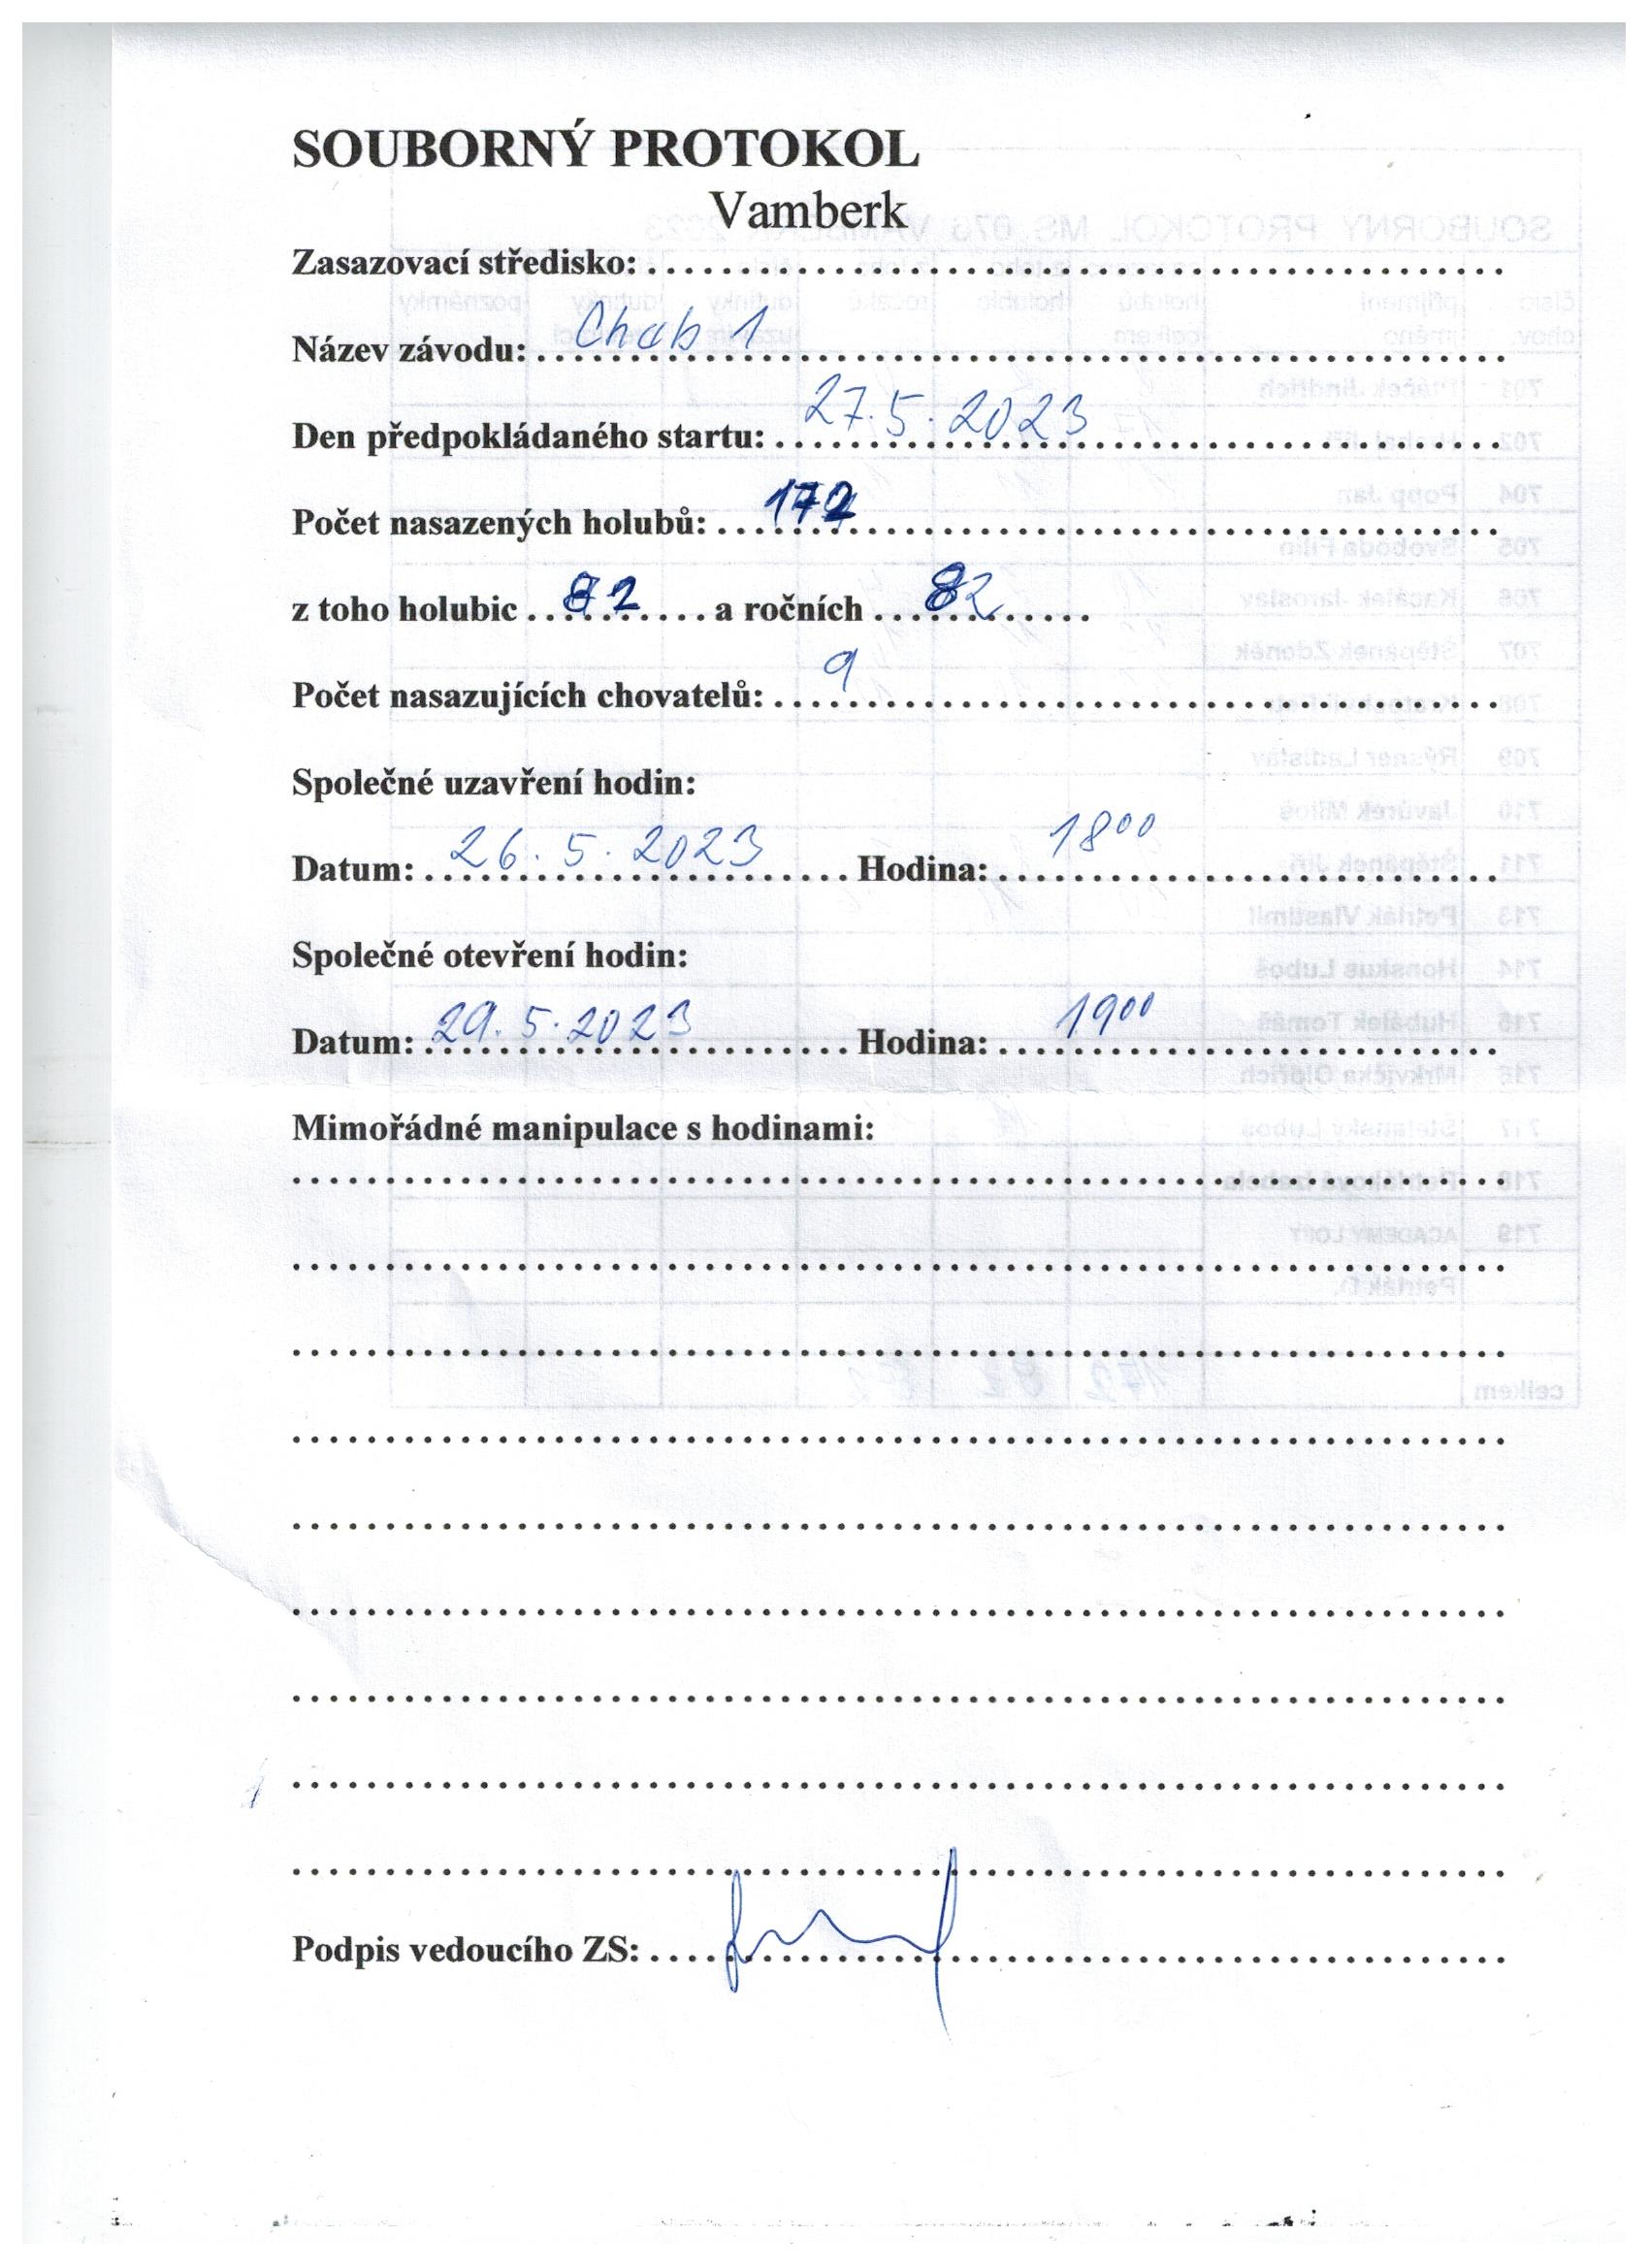 SOUBORNÝ PROTOKOL
Vamberk
Zasazovací středisko:
Název závodu: Cheb 1
Den předpokládaného startu: 27.5.2023
Počet nasazených holubů: 172
z toho holubic 82 a ročních 82
Počet nasazujících chovatelů: 9
Společné uzavření hodin:
Datum: 26.5.2023 Hodina: 18⁰⁰
Společné otevření hodin:
Datum: 29.5.2023 Hodina: 19⁰⁰
Mimořádné manipulace s hodinami:
Podpis vedoucího ZS: